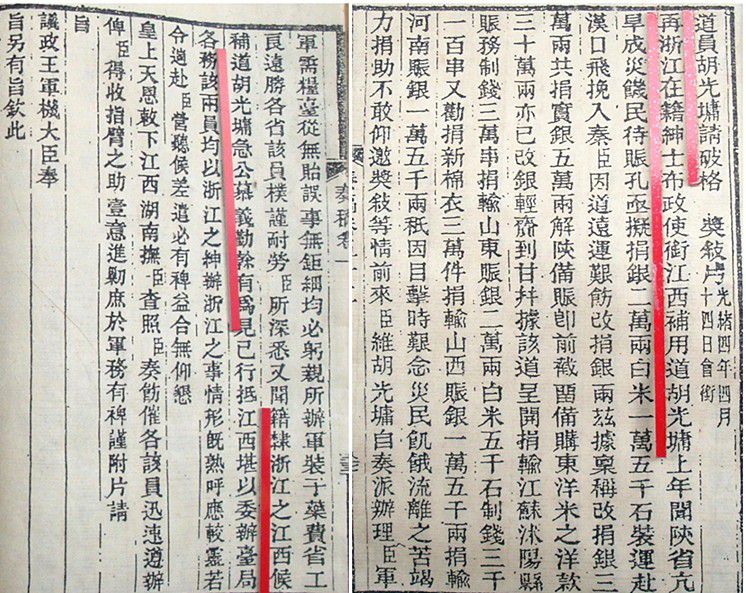 道員胡光墉請破格獎敘片 光緒四年四月
十四日會銜
再浙江在籍紳士布政使銜江西補用道胡光墉上年聞陝省亢
旱成災饑民待賑孔亟擬捐銀二萬兩白米一萬五千石裝運赴
漢口飛挽入秦臣因道遠運艱飭改捐銀兩茲據稟稱改捐銀三
萬兩共捐實銀五萬兩解陝備賑卽前截留備購東洋米之洋款
三十萬兩亦已改銀輕齎到甘幷據該道呈開捐輸江蘇沭陽縣
賑務制錢三萬串捐輸山東賑銀二萬兩白米五千石制錢三千
一百串又勸捐新棉衣三萬件捐輸山西賑銀一萬五千兩捐輸
河南賑銀一萬五千兩秪因目擊時艱念災民飢餓流離之苦竭
力捐助不敢仰邀獎敘等情前來臣維胡光墉自奏派辦理臣軍
奏稿卷一
軍需糧臺從無貽誤事無鉅細均必躬親所辦軍裝子藥費省工
良遠勝各省該員樸謹耐勞臣所深悉又聞籍隸浙江之江西候
補道胡光墉急公慕義勤榦有爲見已行抵江西堪以委辦臺局
各務該兩員均以浙江之紳辦浙江之事情形旣熟呼應較靈若
令迴赴臣營聽候差遣必有裨益合無仰懇
皇上天恩敕下江西湖南撫臣查照臣奏飭催各該員迅速遵辦
俾臣得收指臂之助壹意進勦庶於軍務有裨謹附片請
旨
議政王軍機大臣奉
旨另有旨欽此